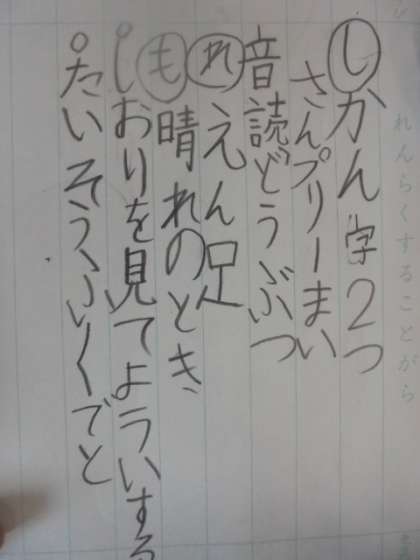 れんらくすることがら
しかん字2つ
さんプリーまい
音読どうぶつ
れえん足
も晴れのとき、
しおりを見てよういする
たいそうふくでと